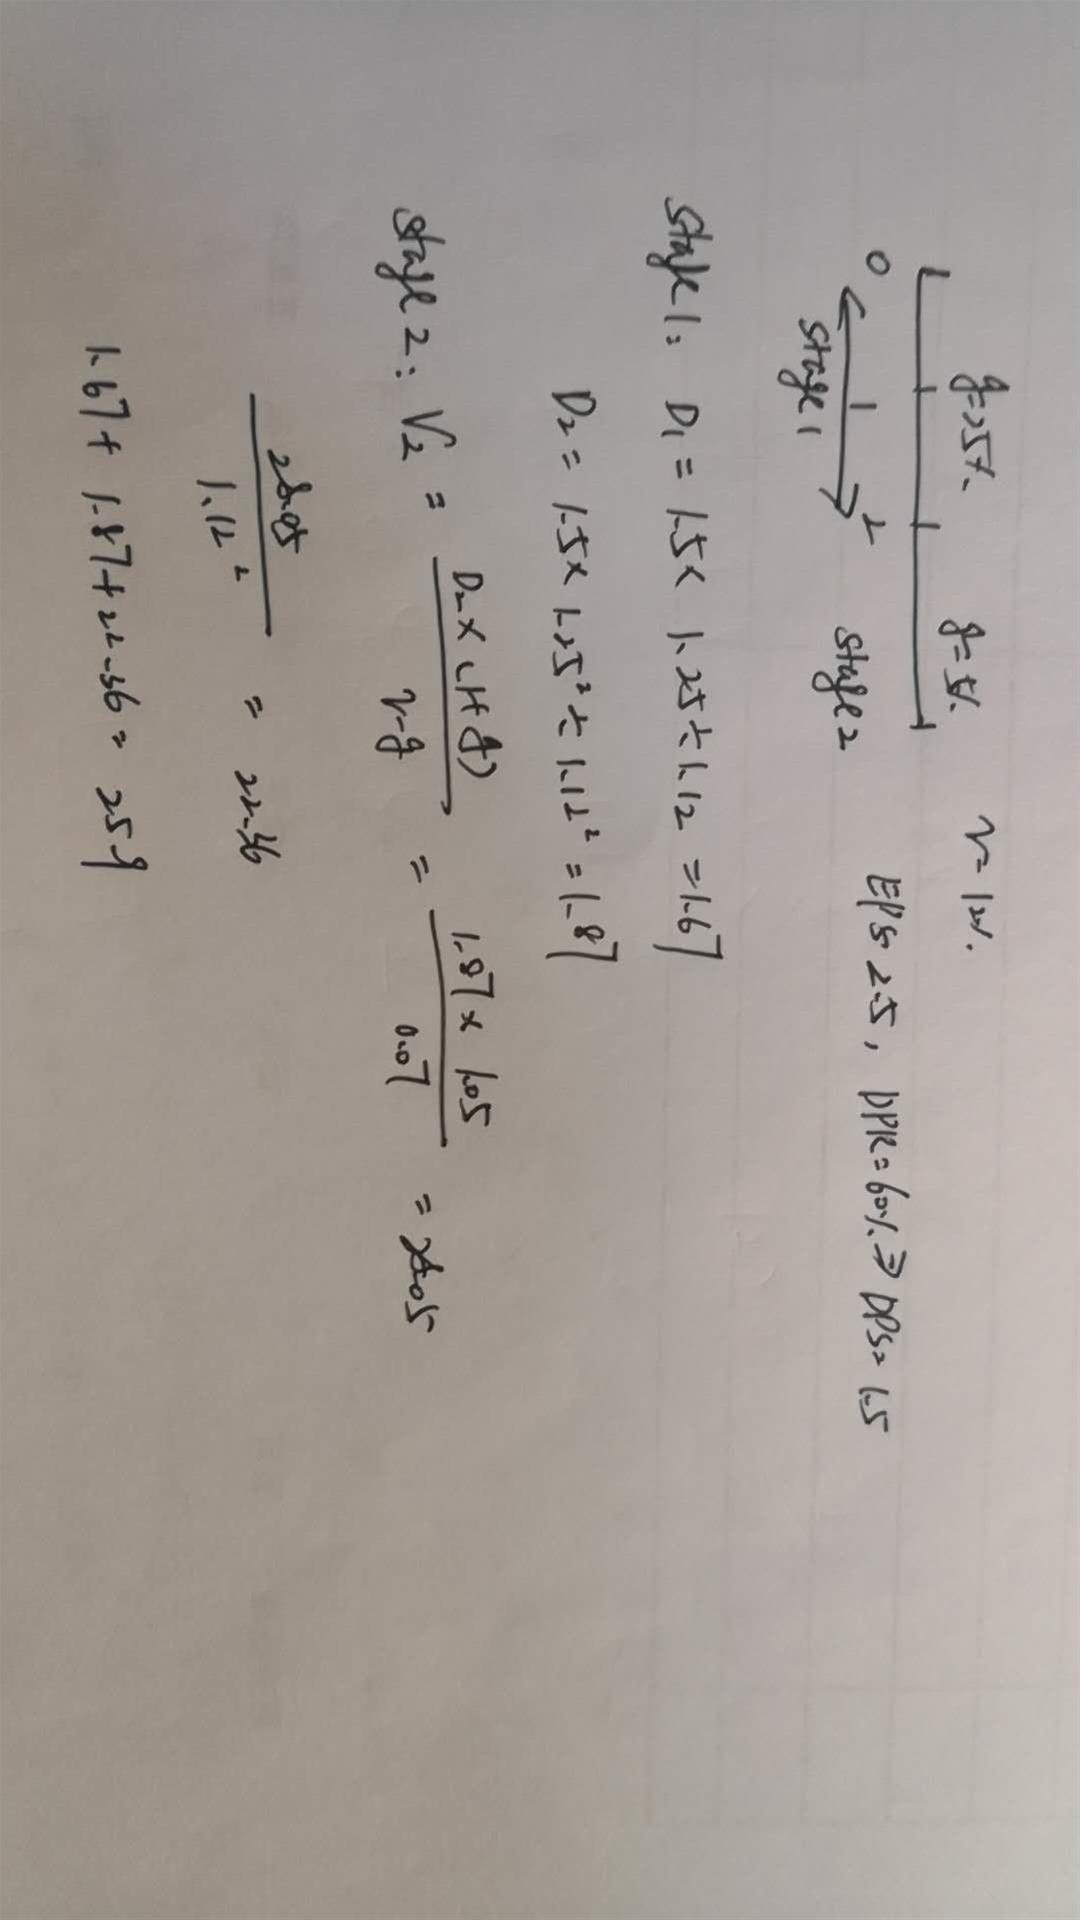 g=25%  g=5%  r=12%
0 1 2  EPS=2.5, DPR=60% ⇒ DPS=1.5
Stage 1  Stage 2
Stage 1: D₁ = 1.5 × 1.25 ÷ 1.12 = 1.67
D₂ = 1.5 × 1.25² ÷ 1.12² = 1.87
Stage 2: V₂ = D₂ × (1+g) / r-g = 1.87 × 1.05 / 0.07 = 28.05
28.05 / 1.12² = 22.36
1.67 + 1.87 + 22.36 = 25.9